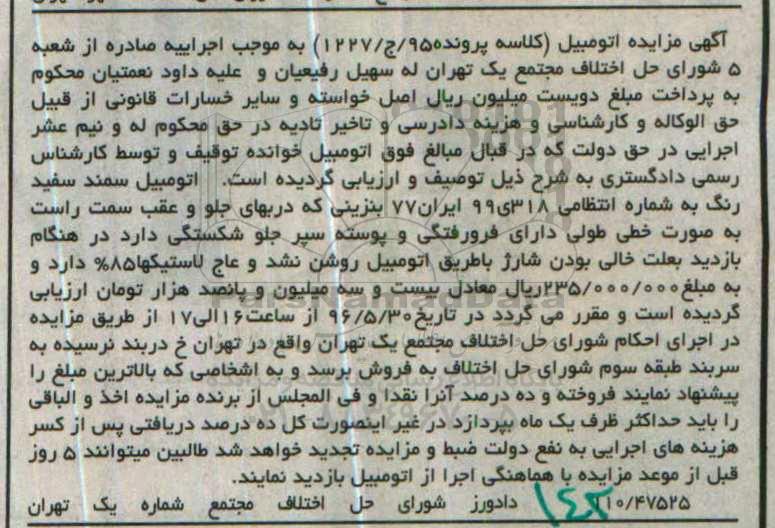 آگهی مزایده اتومبیل (کلاسه پرونده۹۵/ج/۱۲۲۷) به موجب اجراییه صادره از شعبه
۵ شورای حل اختلاف مجتمع یک تهران له سهیل رفیعیان و علیه داود نعمتیان محکوم
به پرداخت مبلغ دویست میلیون ریال اصل خواسته و سایر خسارات قانونی از قبیل
حق الوکاله و کارشناسی و هزینه دادرسی و تاخیر تادیه در حق محکوم له و نیم عشر
اجرایی در حق دولت که در قبال مبالغ فوق اتومبیل خوانده توقیف و توسط کارشناس
رسمی دادگستری به شرح ذیل توصیف و ارزیابی گردیده است. اتومبیل سمند سفید
رنگ به شماره انتظامی ۳۱۸ی۹۹ ایران۷۷ بنزینی که دربهای جلو و عقب سمت راست
به صورت خطی طولی دارای فرورفتگی و پوسته سپر جلو شکستگی دارد در هنگام
بازدید بعلت خالی بودن شارژ باطریق اتومبیل روشن نشد و عاج لاستیکها۸۵% دارد و
به مبلغ۲۳۵/۰۰۰/۰۰۰ریال معادل بیست و سه میلیون و پانصد هزار تومان ارزیابی
گردیده است و مقرر می گردد در تاریخ۹۶/۵/۳۰ از ساعت۱۶الی۱۷ از طریق مزایده
در اجرای احکام شورای حل اختلاف مجتمع یک تهران واقع در تهران خ دربند نرسیده به
سربند طبقه سوم شورای حل اختلاف به فروش برسد و به اشخاصی که بالاترین مبلغ را
پیشنهاد نمایند فروخته و ده درصد آنرا نقدا و فی المجلس از برنده مزایده اخذ و الباقی
را باید حداکثر ظرف یک ماه بپردازد در غیر اینصورت کل ده درصد دریافتی پس از کسر
هزینه های اجرایی به نفع دولت ضبط و مزایده تجدید خواهد شد طالبین میتوانند ۵ روز
قبل از موعد مزایده با هماهنگی اجرا از اتومبیل بازدید نمایند.
۱۱۰/۴۷۵۲۵ دادورز شورای حل اختلاف مجتمع شماره یک تهران
ParsNamadData